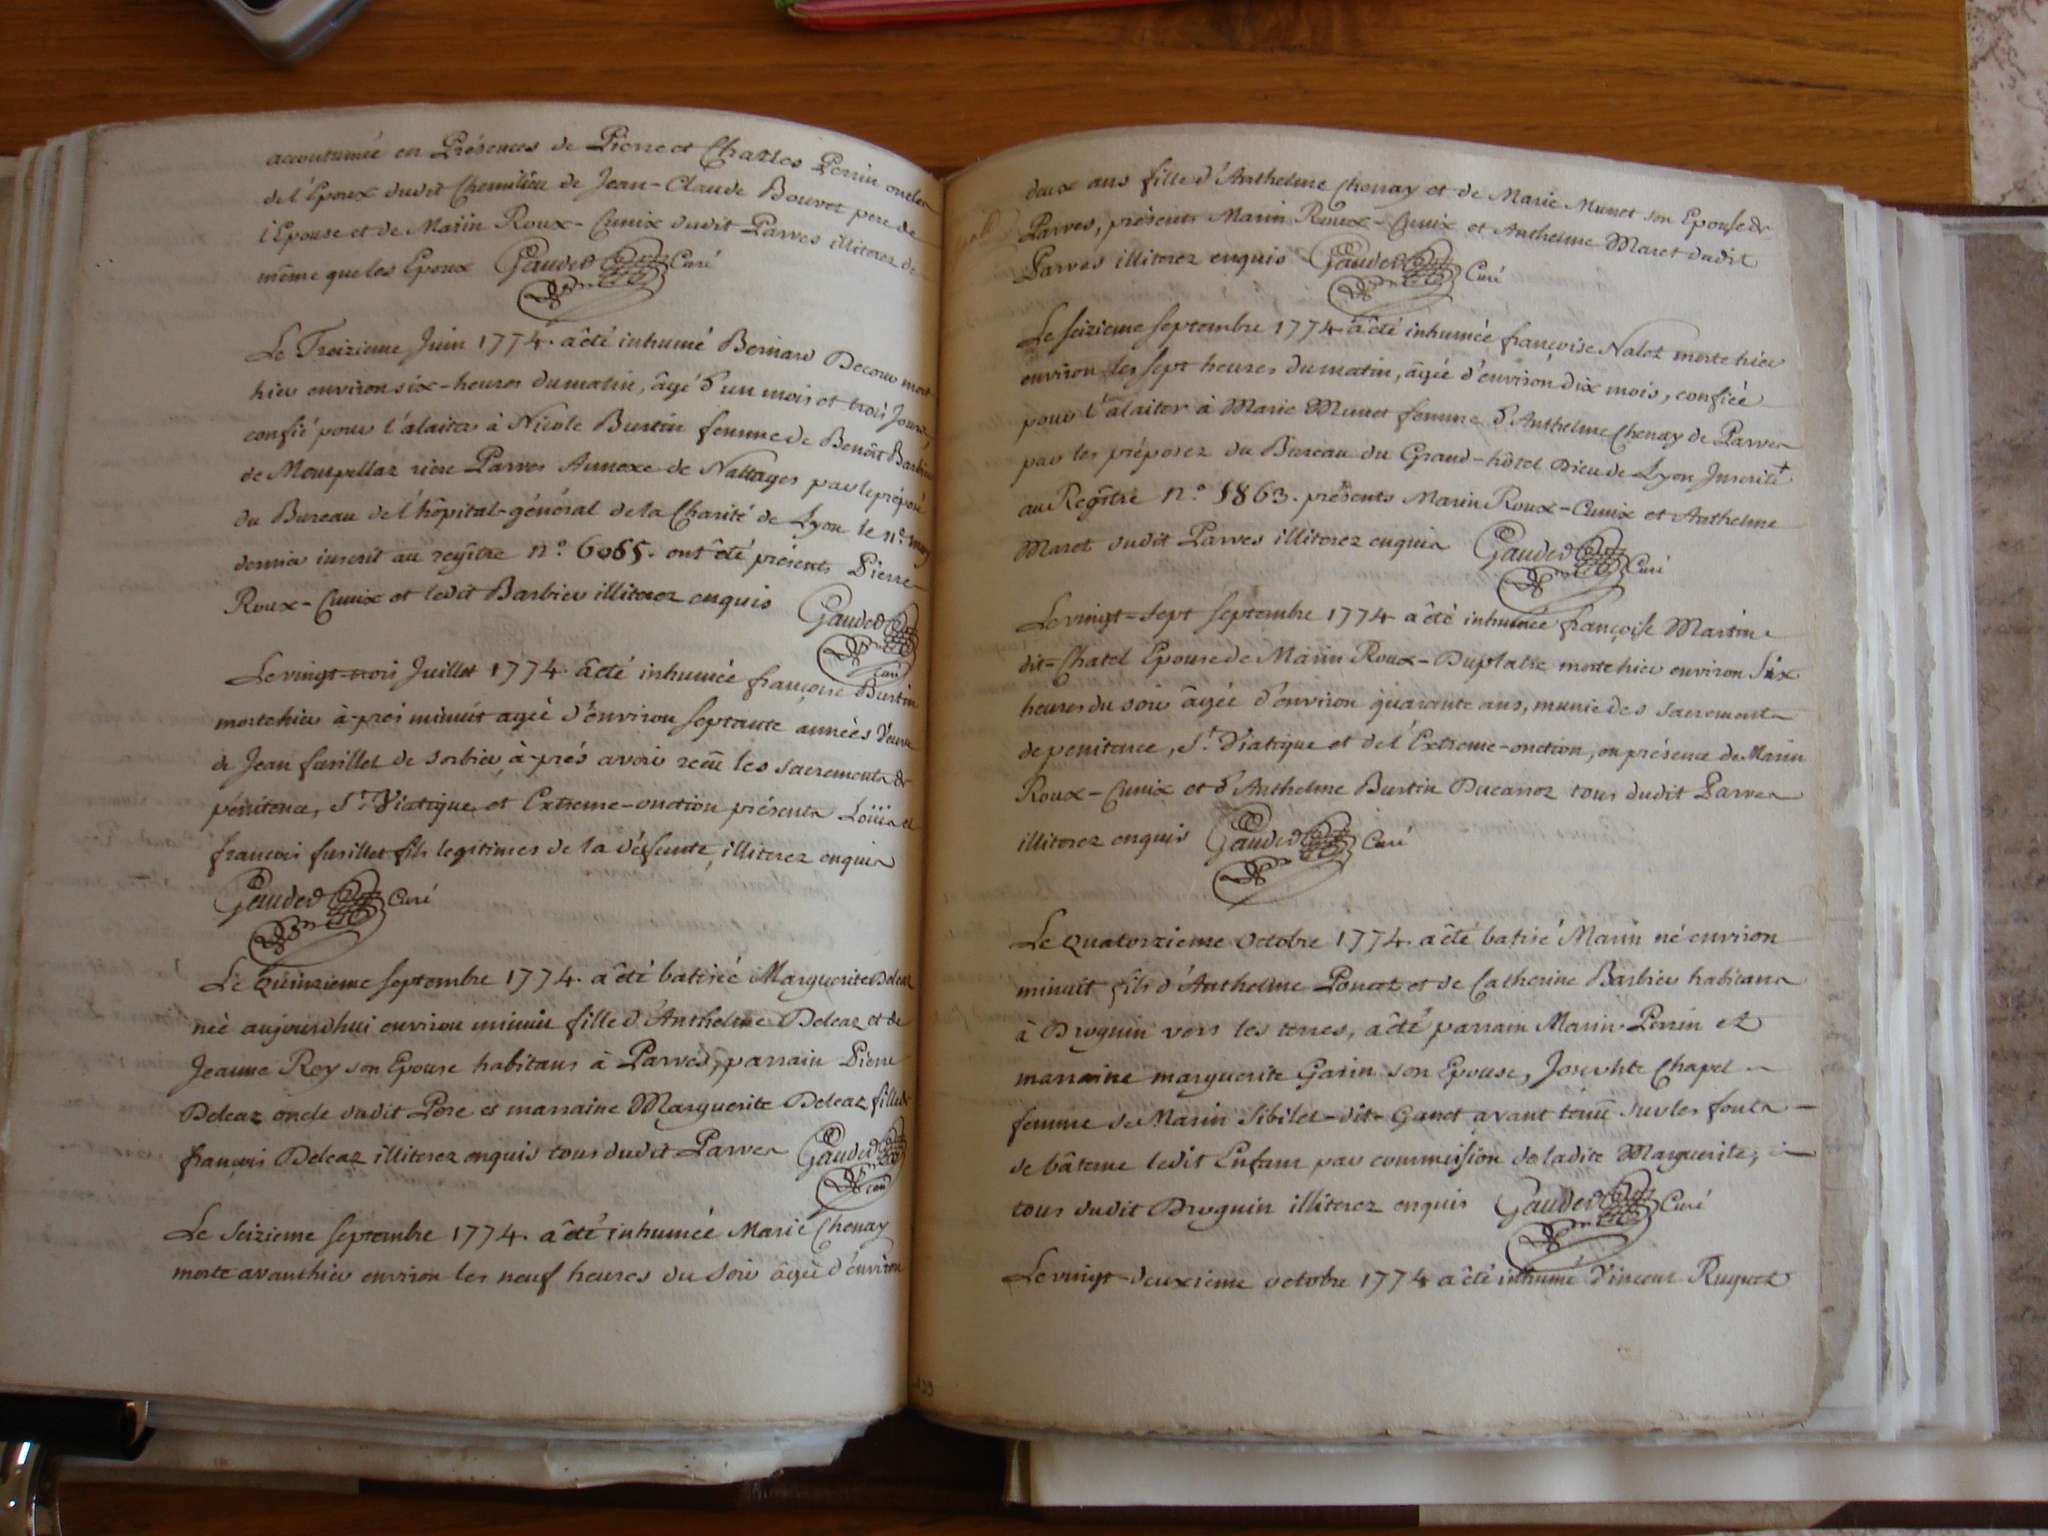 accoutumée en Présences de Pierre et Charles Perrin oncles
de l'Epoux dudit Chemilieu de Jean-Claude Bouvet pere de
l'Epouse et de Marin Roux-Cunix dudit Parves illiterez de
même que les Epoux Gauded Curé
Le Treizieme Juin 1774. a êté inhumé Bernard Decour mort
hier environ six-heures du matin, âgé d'un mois et trois Jours,
confié pour l'alaiter à Nicole Burtin femme de Benoît Barbier
de Montpellaz riere Parves Annexe de Nattages par le préposé
du Bureau de l'hôpital-général de la Charité de Lyon le n.e may
dernier inscrit au regître n.o 6065. ont êté présents Pierre
Roux-Cunix et ledit Barbier illiterez enquis Gauded
Curé
Le vingt-trois Juillet 1774. a êté inhumée françoise Burtin
morte hier à-prés minuit agée d'environ septante années veuve
de Jean fusillet de Sorbier, à-prés avoir recü les sacrements de
pénitence, S.t Viatique et Extreme-onction présents Loüis et
françois fusillet fils legitimes de la défunte, illiterez enquis
Gauded Curé
Le Quinzieme septembre 1774. a êté batisée Marguerite Deleaz
née aujourdhui environ minuit fille d'Anthelme Deleaz et de
Jeanne Rey son Epouse habitans à Parves, parrain Pierre
Deleaz oncle dudit Pere et marraine Marguerite Deleaz fille de
françois Deleaz illiterez enquis tous dudit Parves Gauded
Curé
Le Seizieme septembre 1774. a êté inhumée Marie Chenay
morte avanthier environ les neuf heures du soir âgée d'environ
deux ans fille d'Anthelme Chenay et de Marie Munet son Epouse de
Parves, présents Marin Roux-Cunix et Anthelme Maret dudit
Parves illiterez enquis Gauded Curé
Le seizieme septembre 1774. a êté inhumée françoise Nalet morte hier
environ les sept heures du matin, âgée d'environ dix mois, confiée
pour l'alaiter à Marie Munet femme d'Anthelme Chenay de Parves
par les préposez du Bureau du Grand-hôtel Dieu de Lyon Inscrite
au Regître n.o 1863. présents Marin Roux-Cunix et Anthelme
Maret dudit Parves illiterez enquis Gauded Curé
Le vingt-sept septembre 1774 a êté inhumée françoise Martin
dit-Chatel Epouse de Marin Roux-Duplatre morte hier environ Six
heures du soir âgée d'environ quarante ans, munie des sacrements
de penitence, S.t Viatique et de l'Extreme-onction, en présence de Marin
Roux-Cunix et d'Anthelme Burtin Ducarroz tous dudit Parves
illiterez enquis Gauded Curé
Le Quatorzieme Octobre 1774. a êté batisé Marin né environ
minuit fils d'Anthelme Poncet et de Catherine Barbier habitans
à Droguin vers les terres, a êté parrain Marin Perrin et
marraine marguerite Garin son Epouse, Josephte Chapel
femme de Marin Sibilet-dit-Ganet ayant tenü sur les fonts
de bâteme ledit Enfant par commission de ladite Marguerite,
tous dudit Droguin illiterez enquis Gauded Curé
Le vingt-deuxieme octobre 1774 a êté inhumé Vincent Ruquet